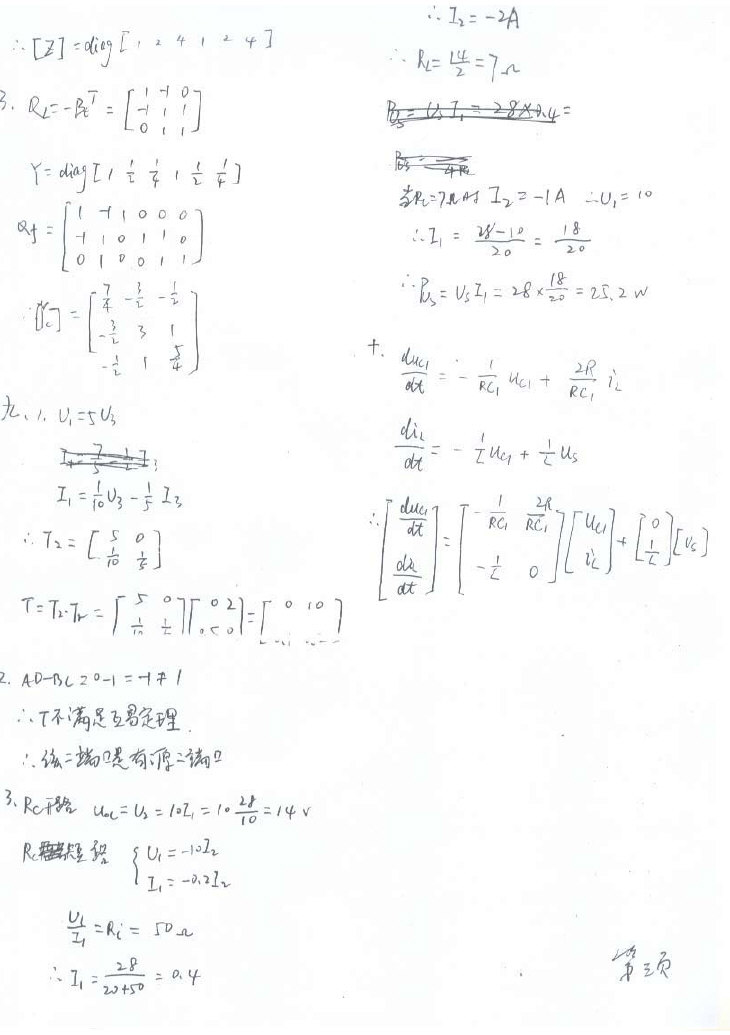 ∴ [Z] = diag [ 1 2 4 1 2 4 ]
3. Q_L = -B_t^T = [ 1 -1 0
-1 1 1
0 1 1 ]
Y = diag [ 1 1/2 1/4 1 1/2 1/4 ]
Q_f = [ 1 -1 1 0 0 0
-1 1 0 1 1 0
0 1 0 0 1 1 ]
∴ [Y_c] = [ 7/4 -3/2 -1/2
-3/2 3 1
-1/2 1 5/4 ]
九、1. U₁ = 5U₃
I₁ = 1/10 U₃ - 1/5 I₃
∴ T₂ = [ 5 0
1/10 1/5 ]
T = T₂·T_r = [ 5 0
1/10 1/5 ] [ 0 2
0.5 0 ] = [ 0 10
]
2. AD-BC = 0-1 = -1 ≠ 1
∴ T不满足互易定理.
∴ 该二端口是有源二端口
3. R_L开路 U_oc = U₂ = 10I₁ = 10 28/10 = 14 V
R_L短路 { U₁ = -10I₂
I₁ = -0.2I₂
U₁/I₁ = R_i = 50 Ω
∴ I₁ = 28/(20+50) = 0.4
∴ I₂ = -2A
∴ R_L = 14/2 = 7 Ω
P_Us = U_s I₁ = 28×0.4 =
当R_L=7Ω时 I₂ = -1A ∴ U₁ = 10
∴ I₁ = (28-10)/20 = 18/20
∴ P_Us = U_s I₁ = 28 × 18/20 = 25.2 W
十、 du_C1/dt = - 1/(RC₁) u_C1 + 2R/(RC₁) i_L
di_L/dt = - 1/L u_C1 + 1/L u_s
∴ [ du_C1/dt
di_L/dt ] = [ -1/(RC₁) 2R/(RC₁)
-1/L 0 ] [ u_C1
i_L ] + [ 0
1/L ] [U_s]
第三页